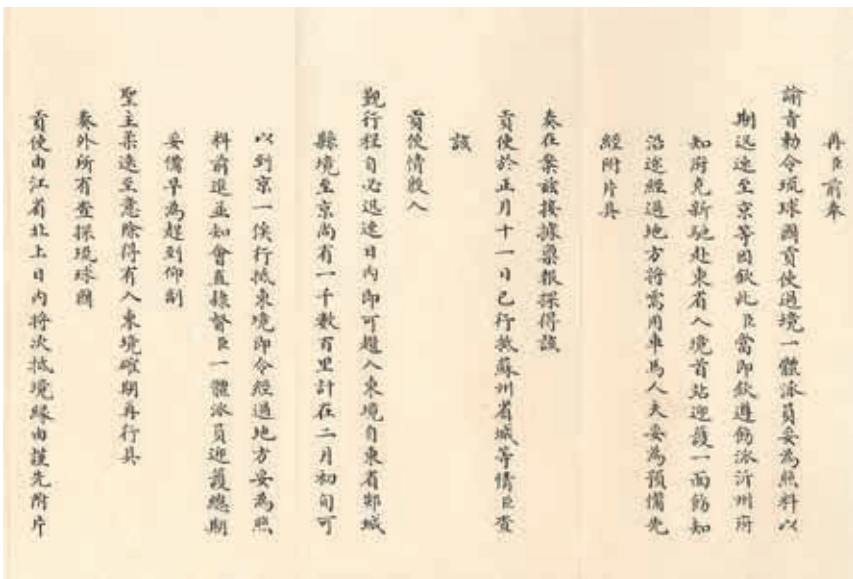 再臣前奉
諭旨勅令琉球國貢使過境一體派員妥為照料以
期迅速至京等因欽此臣當即欽遵飭派沂州府
知府克新馳赴東省入境首站迎護一面飭知
沿途經過地方將需用車馬人夫妥為預備先
經附片具
奏在案茲接據稟報探得該
貢使於正月十一日已行抵蘇州省城等情臣查
該
貢使情殷入
覲行程自必迅速日內即可趲入東境自東省郯城
縣境至京尚有一千數百里計在二月初旬可
以到京一俟行抵東境即令經過地方妥為照
料前進並知會直隸督臣一體派員迎護總期
妥備早為趕到仰副
聖主柔遠至意除得有入東境確期再行具
奏外所有查探琉球國
貢使由江省北上日內將次抵境緣由謹先附片